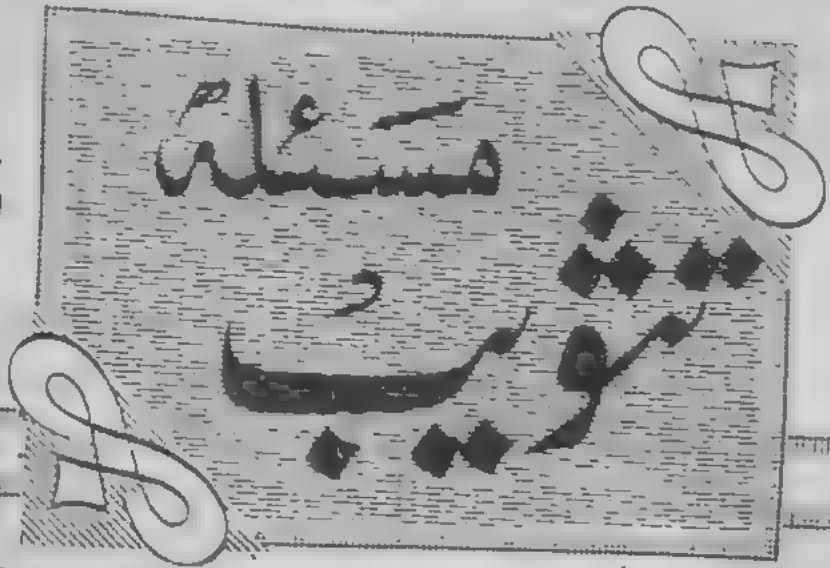 مسئلة
تثويب